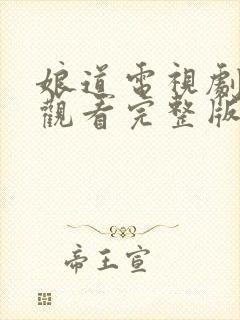 娘道電視劇
觀看完整版
帝王宣